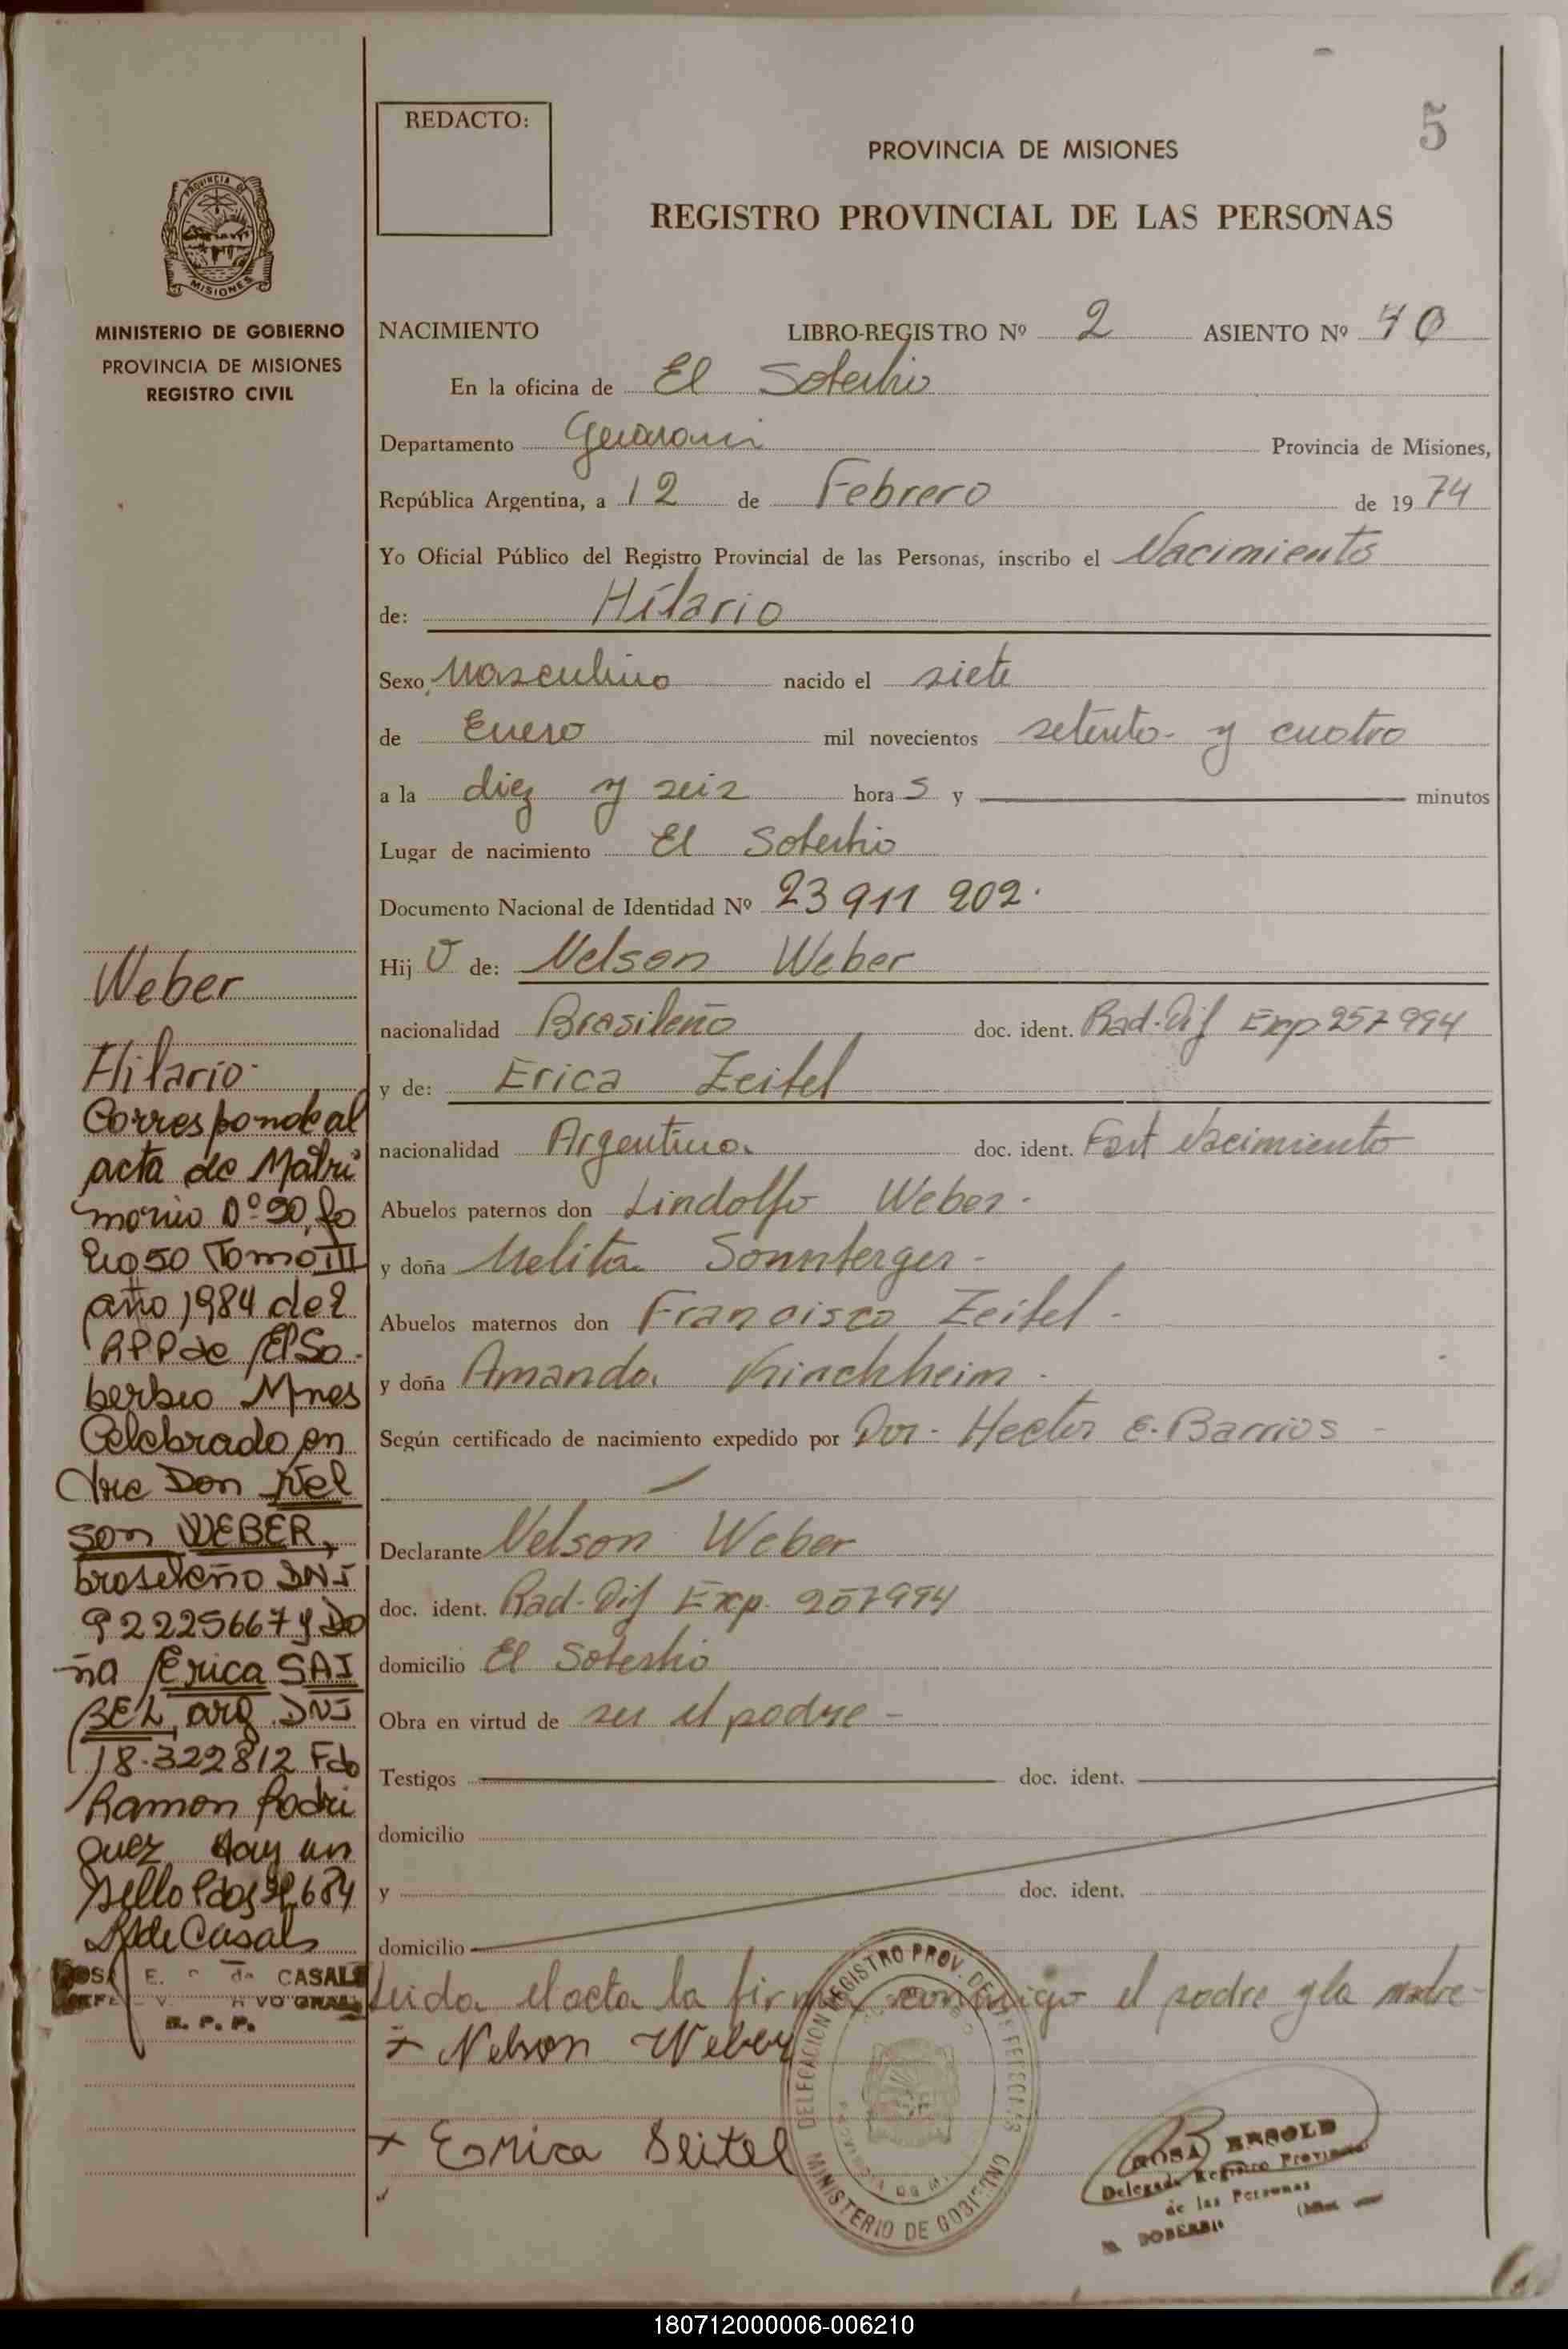 5
REDACTO:
PROVINCIA DE MISIONES
REGISTRO PROVINCIAL DE LAS PERSONAS
PROVINCIA DE
MISIONES
MINISTERIO DE GOBIERNO
PROVINCIA DE MISIONES
REGISTRO CIVIL
NACIMIENTO LIBRO-REGISTRO Nº 2 ASIENTO Nº 40
En la oficina de El Soberbio
Departamento Guarani Provincia de Misiones,
República Argentina, a 12 de Febrero de 1974
Yo Oficial Público del Registro Provincial de las Personas, inscribo el Nacimiento
de: Hilario
Sexo Masculino nacido el siete
de Enero mil novecientos setenta y cuatro
a la diez y seis hora s y minutos
Lugar de nacimiento El Soberbio
Documento Nacional de Identidad Nº 23 911 202.
Hij o de: Nelson Weber
nacionalidad Brasileño doc. ident. Rad. Dif Exp 257994
y de: Erica Zeitel
nacionalidad Argentina. doc. ident. Nacimiento
Abuelos paternos don Lindolfo Weber -
y doña Melita Sonnberger -
Abuelos maternos don Francisco Zeitel -
y doña Amanda Kirchheim -
Según certificado de nacimiento expedido por Dor. Hector E. Barrios -
Declarante Nelson Weber
doc. ident. Rad. Dif Exp. 257994
domicilio El Soberbio
Obra en virtud de ser el padre -
Testigos doc. ident.
domicilio
y doc. ident.
domicilio
Leida el acta la firman conmigo el padre y la madre -
x Nelson Weber
x Erica Seitel
DELEGACION REGISTRO PROV. DE LAS PERSONAS
MINISTERIO DE GOBIERNO
ROSA BERGOLD
Delegada Registro Provincial
de las Personas
SOBERBIO
Weber
Hilario-
Corresponde al
acta de Matri
monio Nº 90, fo
lio 50 Tomo III
año 1984 del
RPP de El So-
berbio Mnes
Celebrado en
tre Don Nel
son WEBER,
brasileño DNI
92225667 y Do
ña Erica SAI
BEL, arg. DNI
18.322812 Fdo
Ramon Rodri
guez Hay un
sello Pdas
de Casals
E. de CASALS
R. P. P.
180712000006-006210